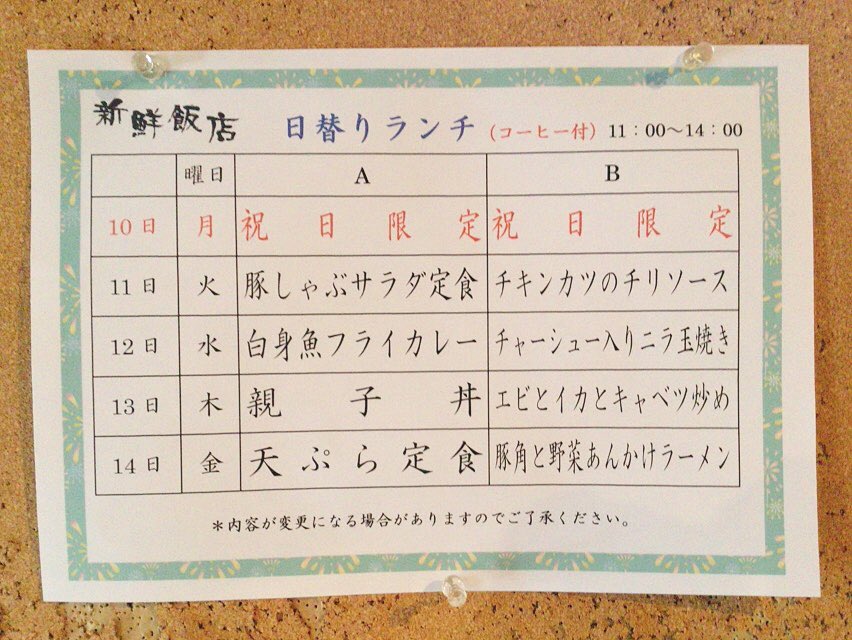 新鮮飯店 日替りランチ (コーヒー付) 11：00～14：00
曜日 A B
10日 月 祝日限定 祝日限定
11日 火 豚しゃぶサラダ定食 チキンカツのチリソース
12日 水 白身魚フライカレー チャーシュー入りニラ玉焼き
13日 木 親子丼 エビとイカとキャベツ炒め
14日 金 天ぷら定食 豚角と野菜あんかけラーメン
＊内容が変更になる場合がありますのでご了承ください。